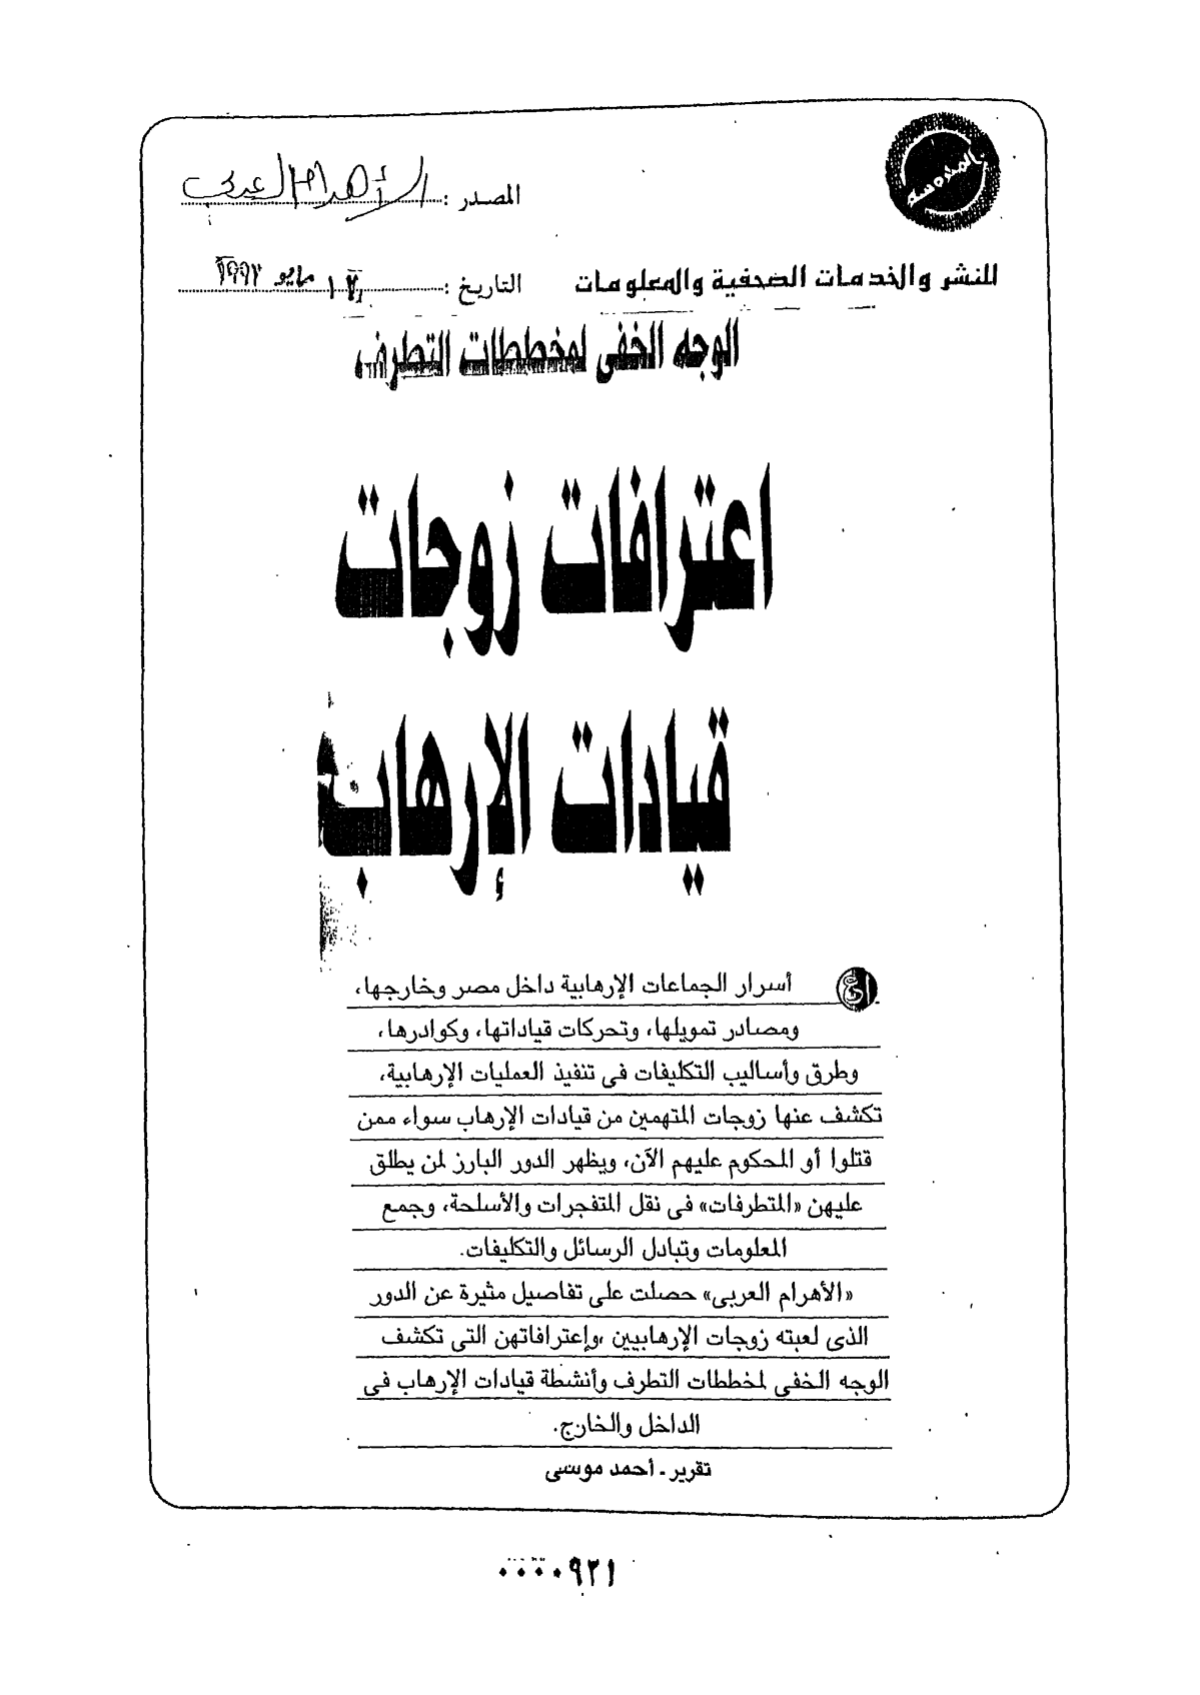 المصدر : الأهرام العربى
للنشر والخدمات الصحفية والمعلومات
التاريخ : مايو
الوجه الخفى لمخططات التطرف
اعترافات زوجات
قيادات الإرهاب
أسرار الجماعات الإرهابية داخل مصر وخارجها،
ومصادر تمويلها، وتحركات قياداتها، وكوادرها،
وطرق وأساليب التكليفات فى تنفيذ العمليات الإرهابية،
تكشف عنها زوجات المتهمين من قيادات الإرهاب سواء ممن
قتلوا أو المحكوم عليهم الآن، ويظهر الدور البارز لمن يطلق
عليهن «المتطرفات» فى نقل المتفجرات والأسلحة، وجمع
المعلومات وتبادل الرسائل والتكليفات.
«الأهرام العربى» حصلت على تفاصيل مثيرة عن الدور
الذى لعبته زوجات الإرهابيين ،وإعترافاتهن التى تكشف
الوجه الخفى لمخططات التطرف وأنشطة قيادات الإرهاب فى
الداخل والخارج.
تقرير ـ أحمد موسى
٠٠٠٠٩٢١